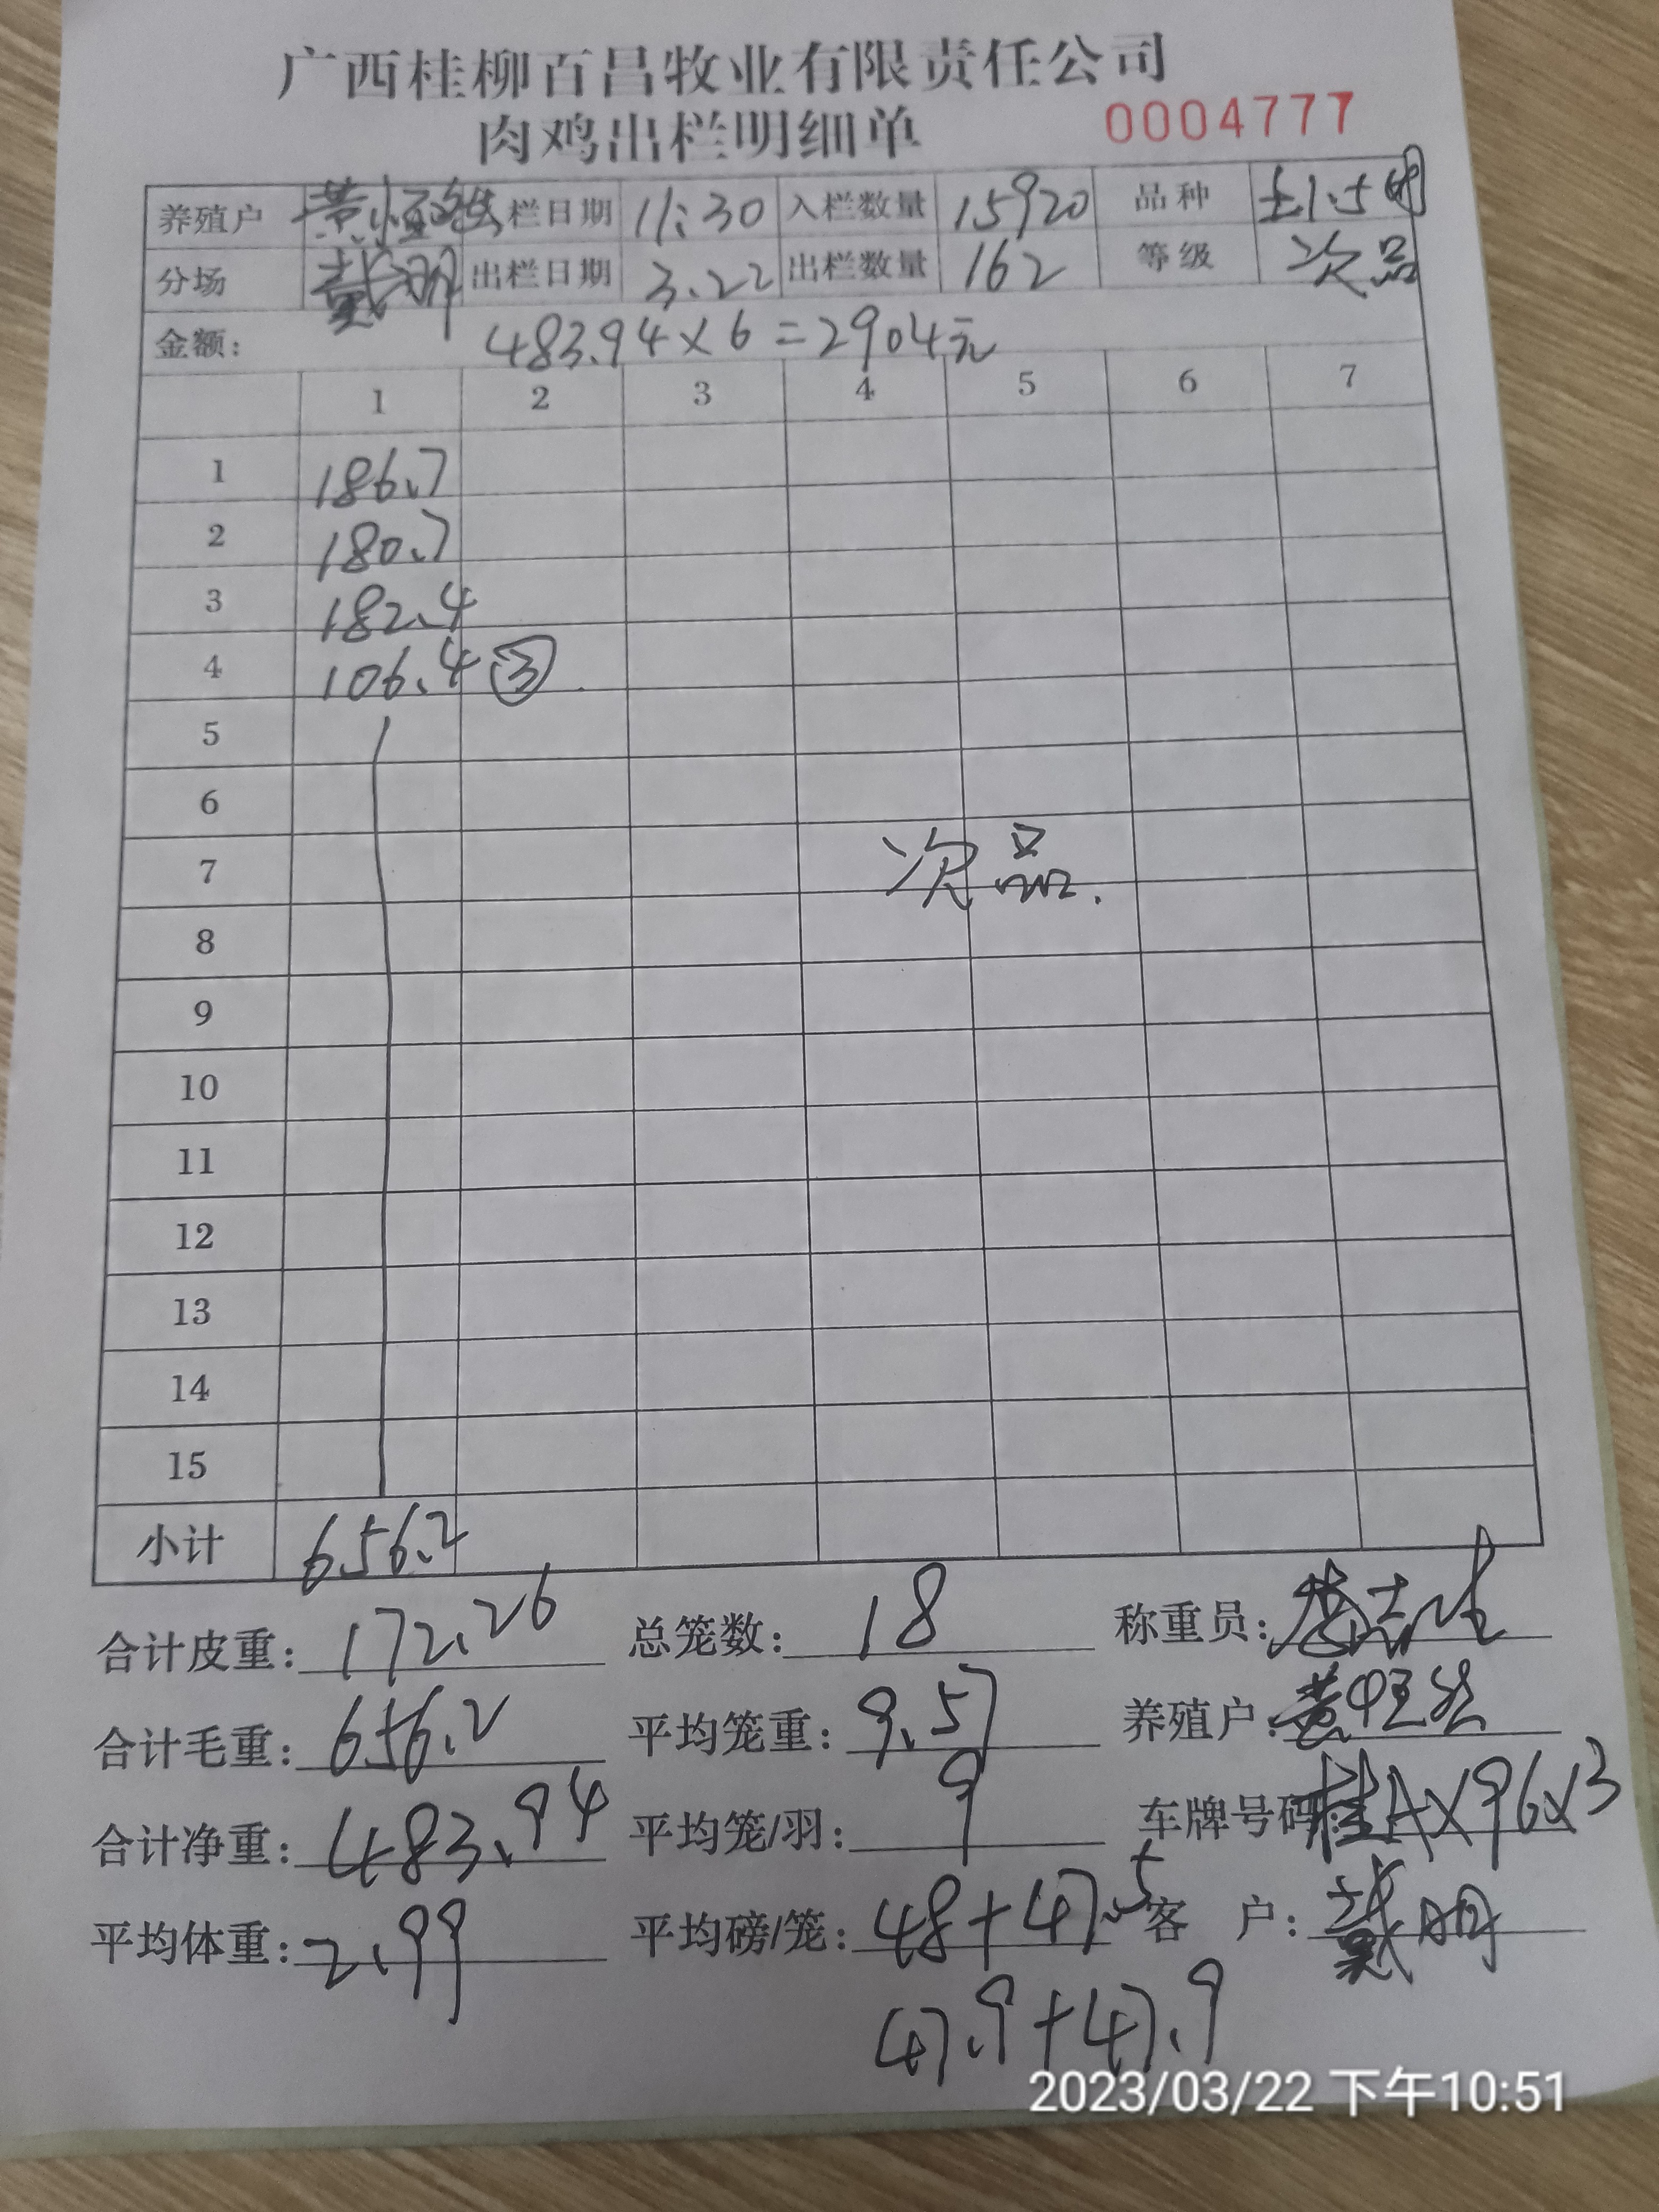 广西桂柳百昌牧业有限责任公司
肉鸡出栏明细单 0004777
养殖户 黄恒 栏日期 11.30 入栏数量 15920 品种 土1.5
分场 戴明 出栏日期 3.22 出栏数量 162 等级 次品
金额: 483.94×6=2904元
1 2 3 4 5 6 7
1 186.7
2 180.7
3 182.4
4 106.4 ③
5
6
7 次品.
8
9
10
11
12
13
14
15
小计 656.2
合计皮重: 172.26 总笼数: 18 称重员:
合计毛重: 656.2 平均笼重: 9.57 养殖户: 黄恒
合计净重: 483.94 平均笼/羽: 9 车牌号码: 桂AX96X3
平均体重: 2.99 平均磅/笼: 48+47.5 客 户: 戴明
47.9+47.9
2023/03/22 下午10:51